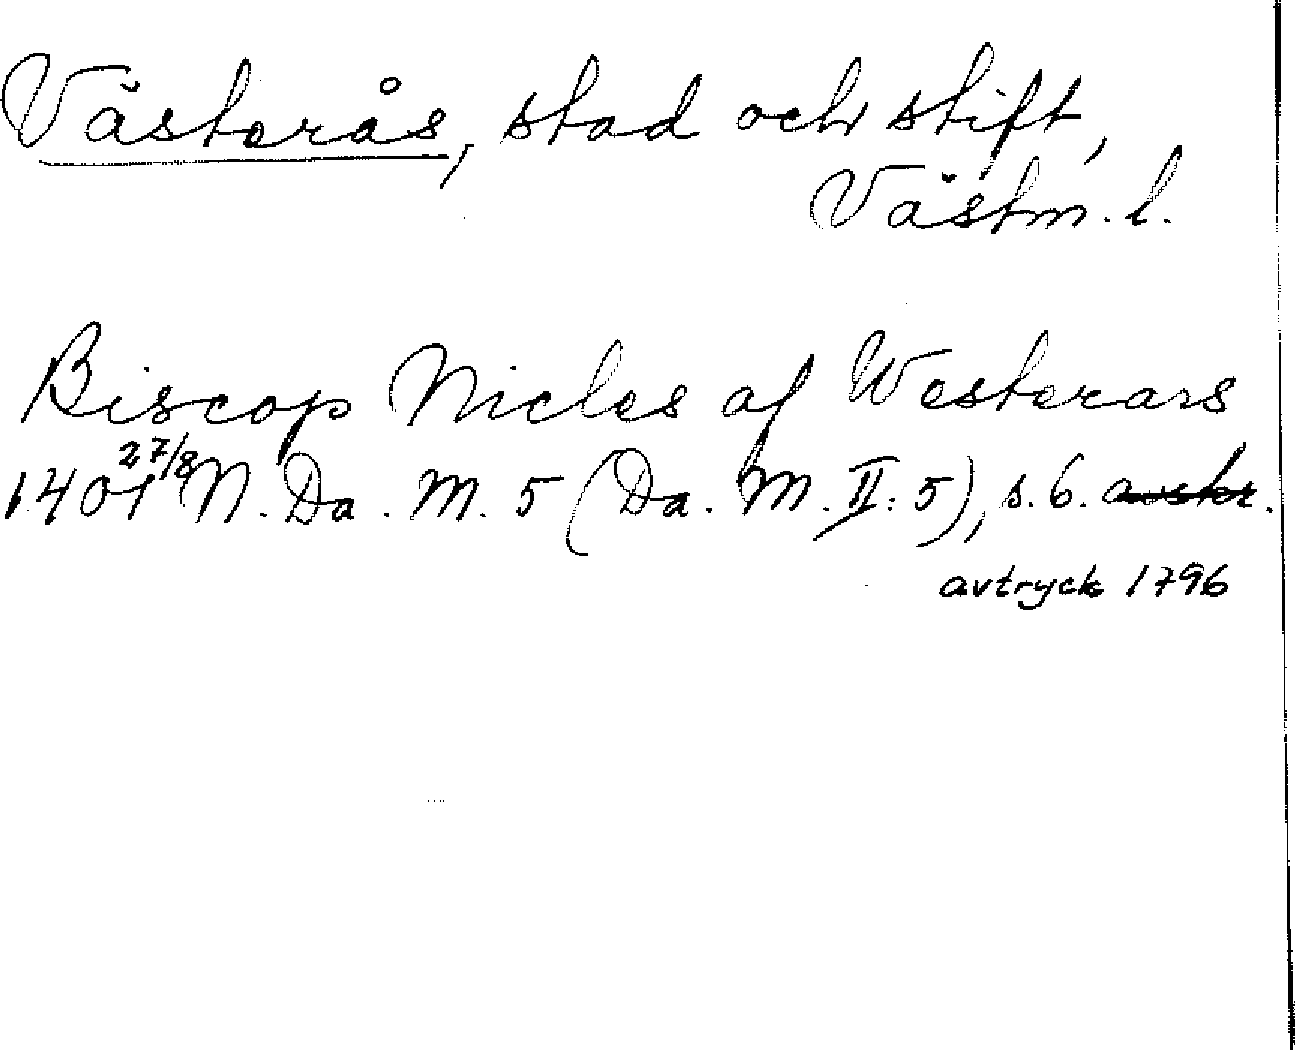 Västerås, stad och stift,
Västm. l.
Biscop Nicles af Westerars
1401 27/8 N. Da. M. 5 (Da. M. II: 5), s. 6. avskr.
avtryck 1796